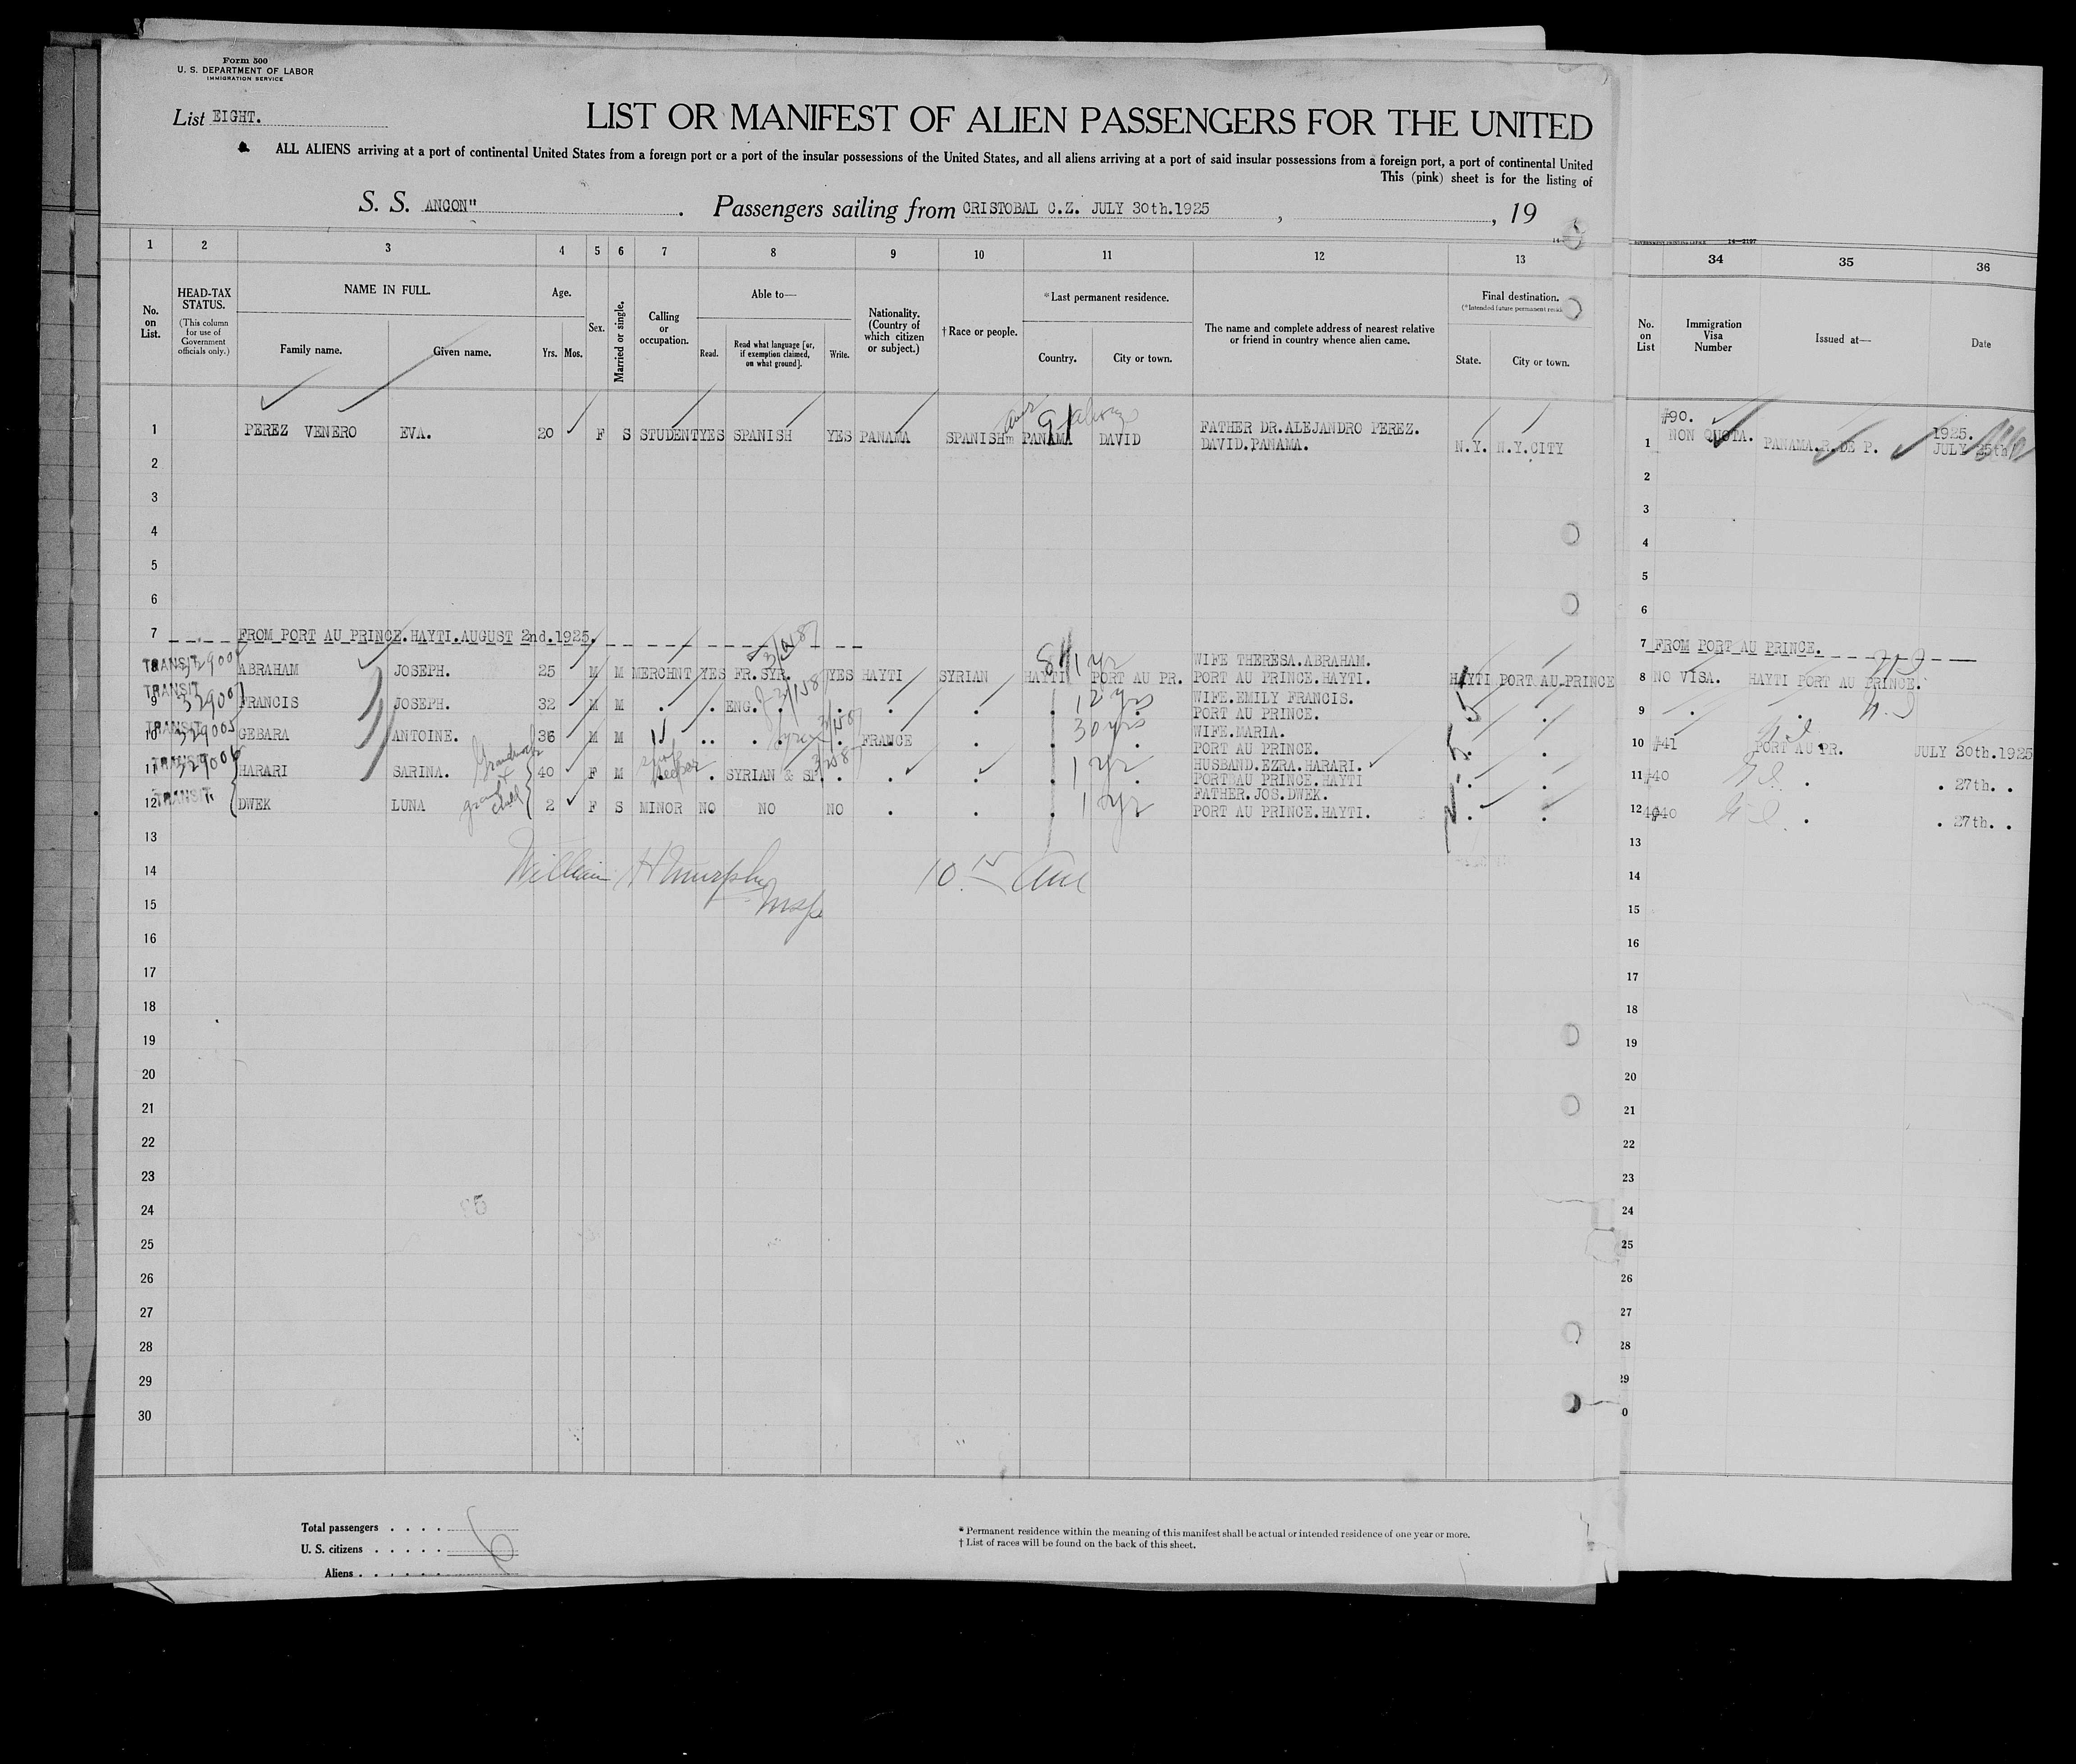 Form 500
U. S. DEPARTMENT OF LABOR
IMMIGRATION SERVICE
List EIGHT.
LIST OR MANIFEST OF ALIEN PASSENGERS FOR THE UNITED
ALL ALIENS arriving at a port of continental United States from a foreign port or a port of the insular possessions of the United States, and all aliens arriving at a port of said insular possessions from a foreign port, a port of continental United
This (pink) sheet is for the listing of
S. S. ANCON" . Passengers sailing from CRISTOBAL C.Z. JULY 30th.1925 , , 19
1 2 3 4 5 6 7 8 9 10 11 12 13 34 35 36
No. on List.
HEAD-TAX STATUS.
(This column for use of Government officials only.)
NAME IN FULL.
Family name. Given name.
Age.
Yrs. Mos.
Sex.
Married or single.
Calling or occupation.
Able to—
Read. Read what language [or, if exemption claimed, on what ground]. Write.
Nationality. (Country of which citizen or subject.)
† Race or people.
* Last permanent residence.
Country. City or town.
The name and complete address of nearest relative or friend in country whence alien came.
Final destination.
(* Intended future permanent
State. City or town.
No. on List
Immigration Visa Number
Issued at—
Date
1 PEREZ VENERO EVA. 20 F S STUDENT YES SPANISH YES PANAMA SPANISH PANAMA DAVID FATHER DR.ALEJANDRO PEREZ. DAVID.PANAMA. N.Y. N.Y.CITY 1 #90. NON QUOTA. PANAMA.R.DE P. 1925. JULY 25th
2 2
3 3
4 4
5 5
6 6
7 FROM PORT AU PRINCE.HAYTI.AUGUST 2nd.1925. 7 FROM PORT AU PRINCE.
8 TRANSIT ABRAHAM JOSEPH. 25 M M MERCHNT YES FR.SYR. YES HAYTI SYRIAN HAYTI 1 yr PORT AU PR. WIFE THERESA.ABRAHAM. PORT AU PRINCE.HAYTI. HAYTI PORT AU PRINCE 8 NO VISA. HAYTI PORT AU PRINCE.
9 TRANSIT 329007 FRANCIS JOSEPH. 32 M M . . ENG. . . . . 12 yrs WIFE.EMILY FRANCIS. PORT AU PRINCE. 9
10 TRANSIT 329005 GEBARA ANTOINE. 36 M M FRANCE . 30 yrs WIFE.MARIA. PORT AU PRINCE. 10 #41 PORT AU PR. JULY 30th.1925
11 TRANSIT 329006 HARARI SARINA. 40 F M . SYRIAN & SP. . . . 1 yr HUSBAND.EZRA.HARARI. PORTBAU PRINCE.HAYTI 11 #40 . 27th. .
12 TRANSIT. DWEK LUNA 2 F S MINOR NO NO NO . . 1 yr FATHER.JOS.DWEK. PORT AU PRINCE.HAYTI. . . 12 . . 27th. .
13 13
14 William H Murphy 10 15 am 14
15 Insp 15
16 16
17 17
18 18
19 19
20 20
21 21
22 22
23 23
24 24
25 25
26 26
27 27
28 28
29 29
30 0
Total passengers . . . .
U. S. citizens . . . . . 6
Aliens . . . . . .
* Permanent residence within the meaning of this manifest shall be actual or intended residence of one year or more.
† List of races will be found on the back of this sheet.